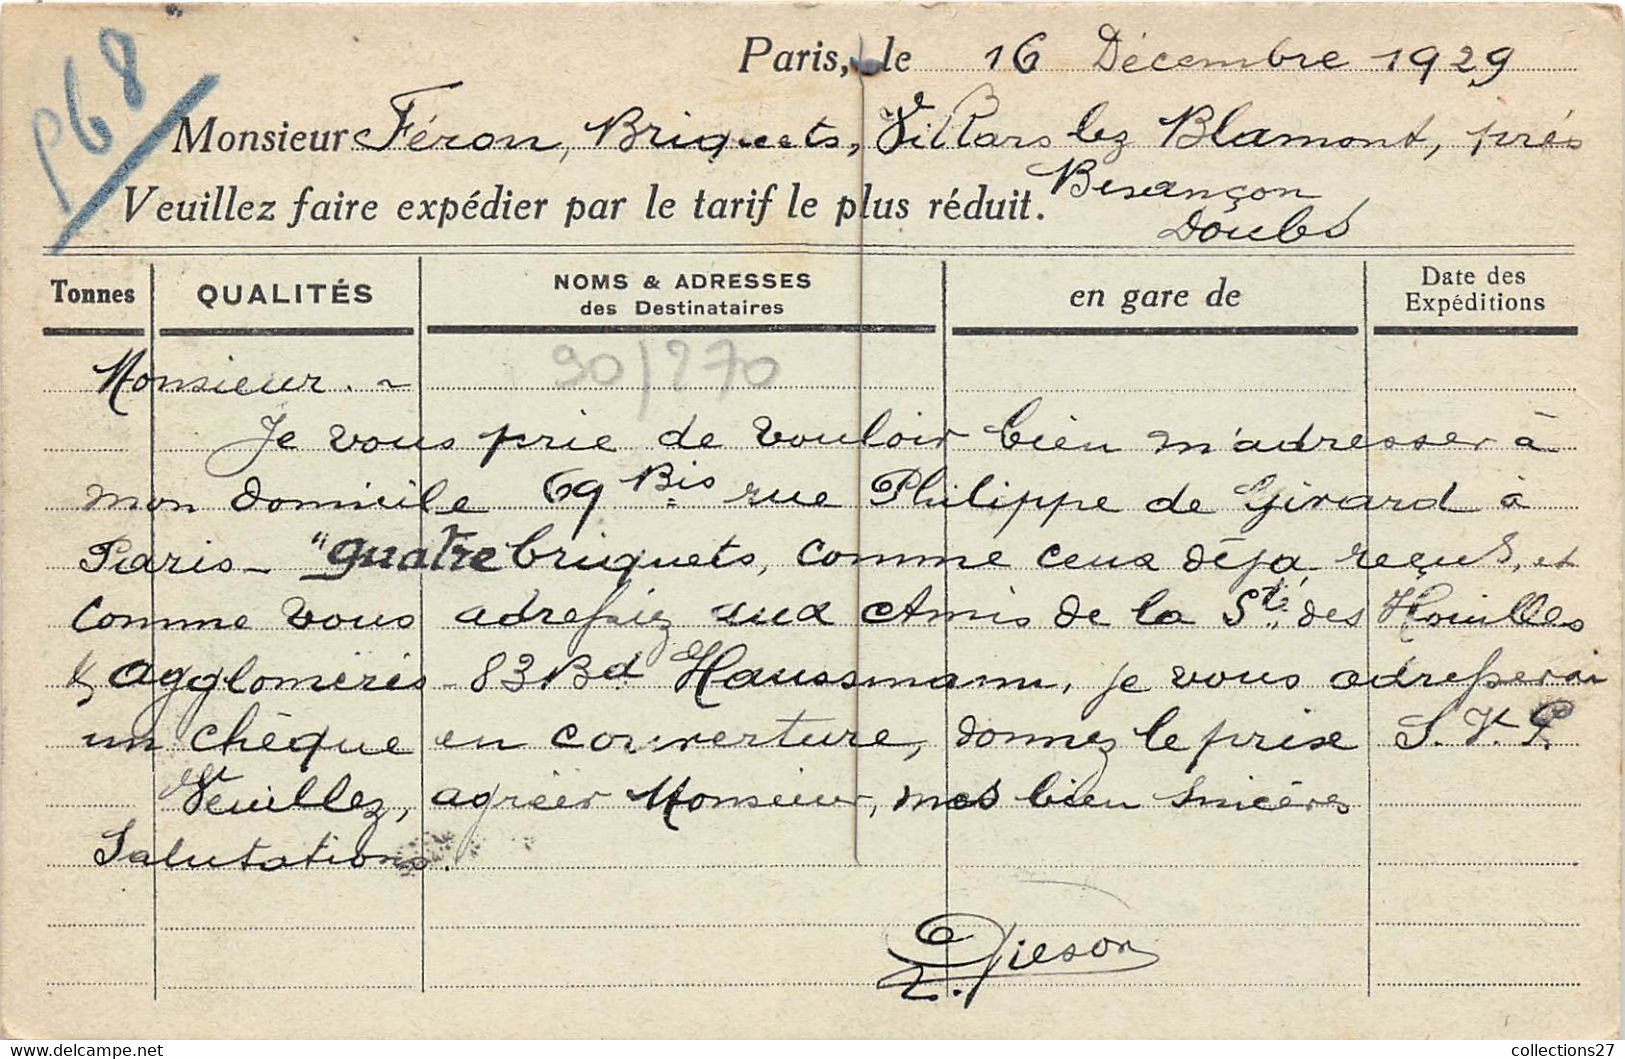 P68
Paris, le 16 Décembre 1929
Monsieur Féron, Briquets, Villars lez Blamont, près
Besançon
Doubs
Veuillez faire expédier par le tarif le plus réduit.
Tonnes QUALITÉS NOMS & ADRESSES des Destinataires en gare de Date des Expéditions
90/270
Monsieur. ~
Je vous prie de vouloir bien m'adresser à
mon domicile 69 Bis rue Philippe de Girard à
Paris - "quatre briquets, comme ceux déjà reçus, et
comme vous adressiez aux Amis de la Sté. des Houilles
& Agglomérés - 83 Bd Haussmann, je vous adresserai
un chèque en couverture, donnez le prix S.V.P.
Veuillez, agréer Monsieur, mes bien sincères
Salutations.
collections27